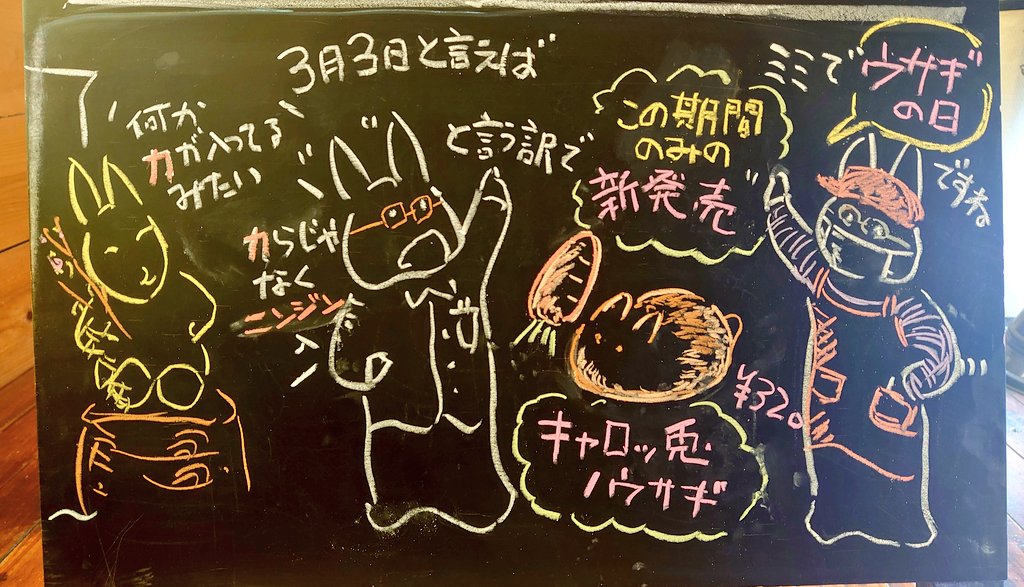 3月3日と言えば
ミミで
ウサギ
の日
ですね
と言う訳で
この期間
のみの
新発売
¥320
キャロッ兎・
ノウサギ
何か
力が入ってる
みたい
力らじゃ
なく
ニンジン
入